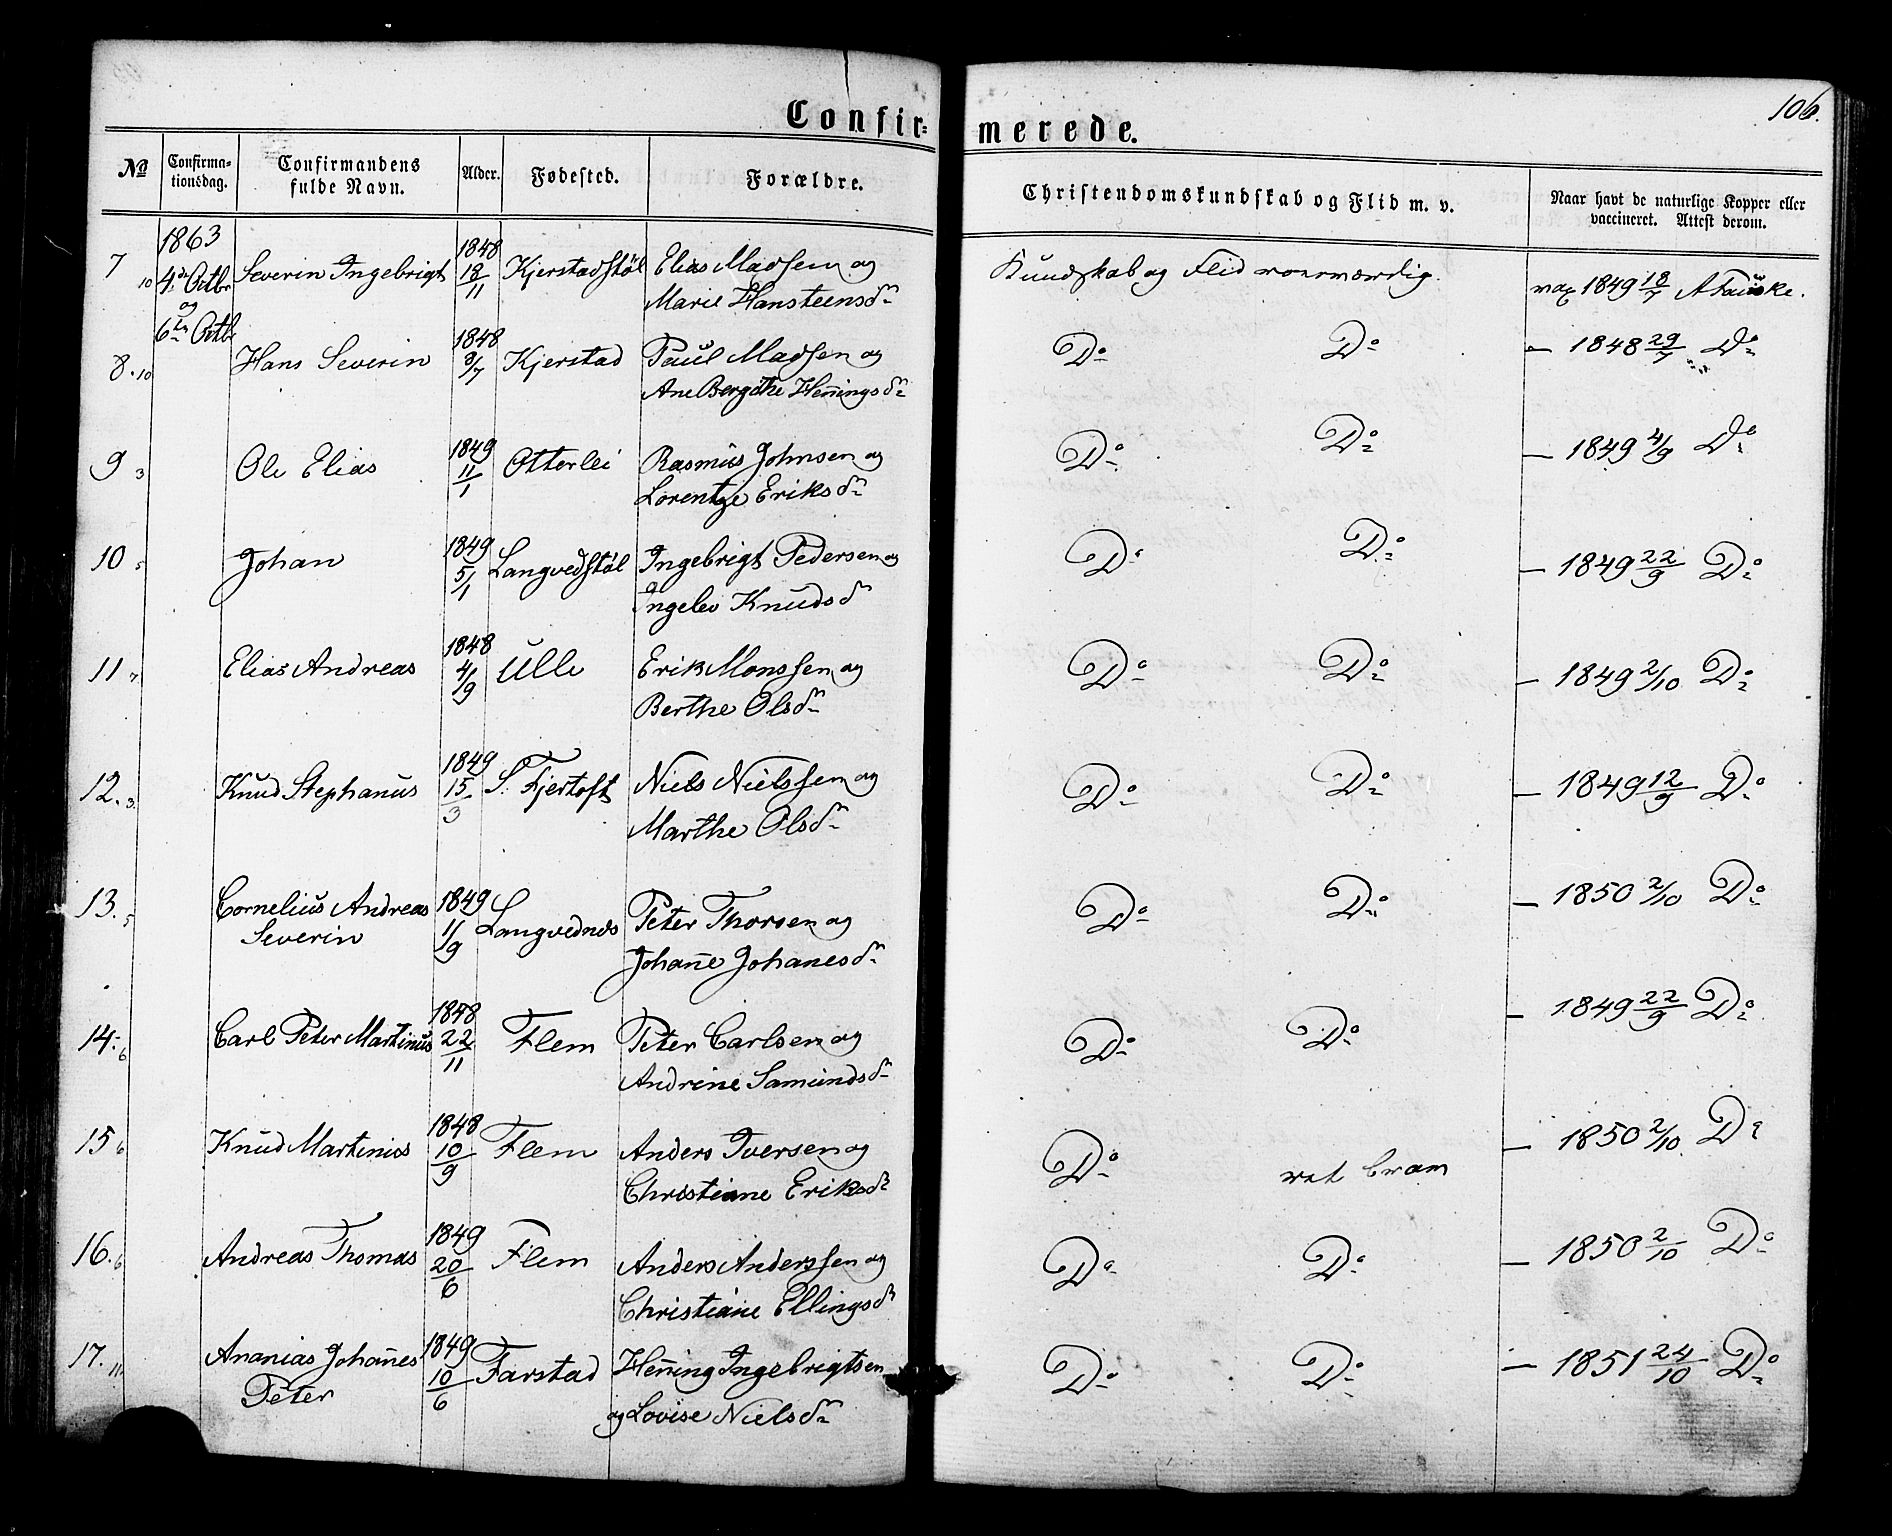 106.
Confir= merede.
No Confirma-tionsdag. Confirmandens fulde Navn. Alder. Fødested. Forældre. Christendomskundskab og Flid m. v. Naar havt de naturlige Kopper eller vaccineret. Attest derom.
1863
7 10 4de Octbr Severin Ingebrigt 1848 18/11 Kjerstadstøl Elias Madsen og Kundskab og Flid roesværdig. vax 1849 18/7 A Fauske.
og Marie Hansteensdr
6te Octbr
8. 10 Hans Severin 1848 9/7 Kjerstad Paul Madsen og Do Do — 1848 29/7 Do
Ane Bergithe Hen̄ingsdr
9 3 Ole Elias 1849 11/1 Otterlei Rasmus Johnsen og Do Do — 1849 4/9 Do
Lorentze Eriksdr
10 5 Johan 1849 5/1 Langvedstøl Ingebrigt Pedersen og Do Do — 1849 22/9 Do
Ingelev Knudsdr
11 7 Elias Andreas 1848 4/9 Ulle Erik Monssen og Do Do — 1849 2/10 Do
Berthe Olsdr
12. 3 Knud Stephanus 1849 15/3 S. Fjertoft Niels Nielssen og Do Do — 1849 12/9 Do
Marthe Olsdr
13. 5 Cornelius Andreas 1849 1/9 Langvednes Peter Thorsen og Do Do — 1850 2/10 Do
Severin Johan̄e Johanesdr
14. 6 Carl Peter Martinus 1848 22/11 Flem Peter Carlsen og Do Do — 1849 22/9 Do
Andrine Samundsdr
15 6 Knud Martinius 1848 10/9 Flem Anders Iversen og Do ret bram — 1850 2/10 Do
Christiane Eriksdr
16. 6 Andreas Thomas 1849 20/6 Flem Anders Anderssen og Do Do — 1850 2/10 Do
Christiane Ellingsdr
17. 11 Ananias Johan̄es 1849 10/6 Farstad Hen̄ing Ingebrigtsen Do Do — 1851 24/10 Do
Peter og Lovise Nielsdr